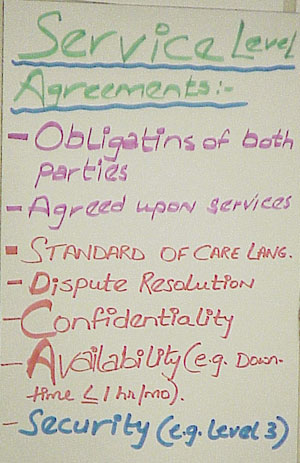 Service Level
Agreements:-
- Obligatins of both
parties
- Agreed upon services
- STANDARD OF CARE LANG.
- Dispute Resolution
- Confidentiality
- Availability (e.g. Down-
time ≤ 1 hr/mo).
- Security (e.g. Level 3)